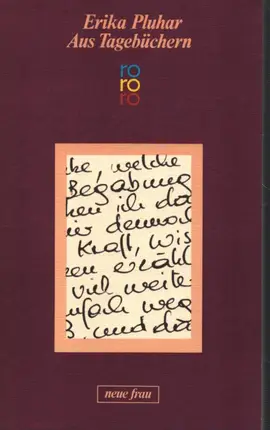 Erika Pluhar
Aus Tagebüchern
ro
ro
ro
ke, welche
Begabung
hen ich da
ier dennoch
Kraft, wis
zen erzähl
viel weite
nfach weg
ß, und da
neue frau